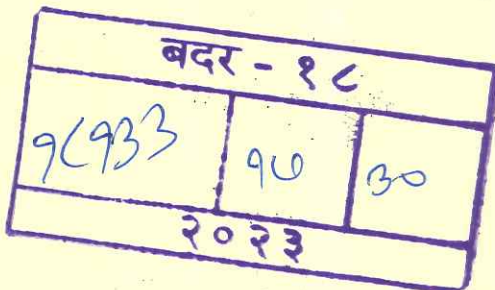 बदर - १८
१८१३३ १७ ३०
२०२३